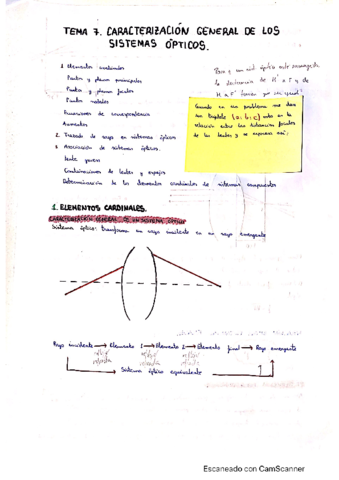 TEMA 7. CARACTERIZACIÓN GENERAL DE LOS
SISTEMAS ÓPTICOS.
1 Elementos cardinales
Puntos y planos principales
Puntos y planos focales
Puntos nodales
Ecuaciones de correspondencia
Aumentos
2. Trazado de rayos en sistemas ópticos
3. Asociación de sistemas ópticos.
Lente gruesa
Combinaciones de lentes y espejos
Determinación de los elementos cardinales de sistemas compuestos
Para
la distancia de H' a F' y de
H a F
Cuando en un problema me dan
un triplete (a:b:c) esto es la
relación entre las distancias focales
de las lentes y se expresa así:
1. ELEMENTOS CARDINALES.
CARACTERIZACIÓN GENERAL DE UN SISTEMA ÓPTICO
Sistema óptico: transforma un rayo incidente en un rayo emergente
Rayo incidente → Elemento 1 → Elemento 2 → Elemento final → Rayo emergente
Sistema óptico equivalente
Escaneado con CamScanner